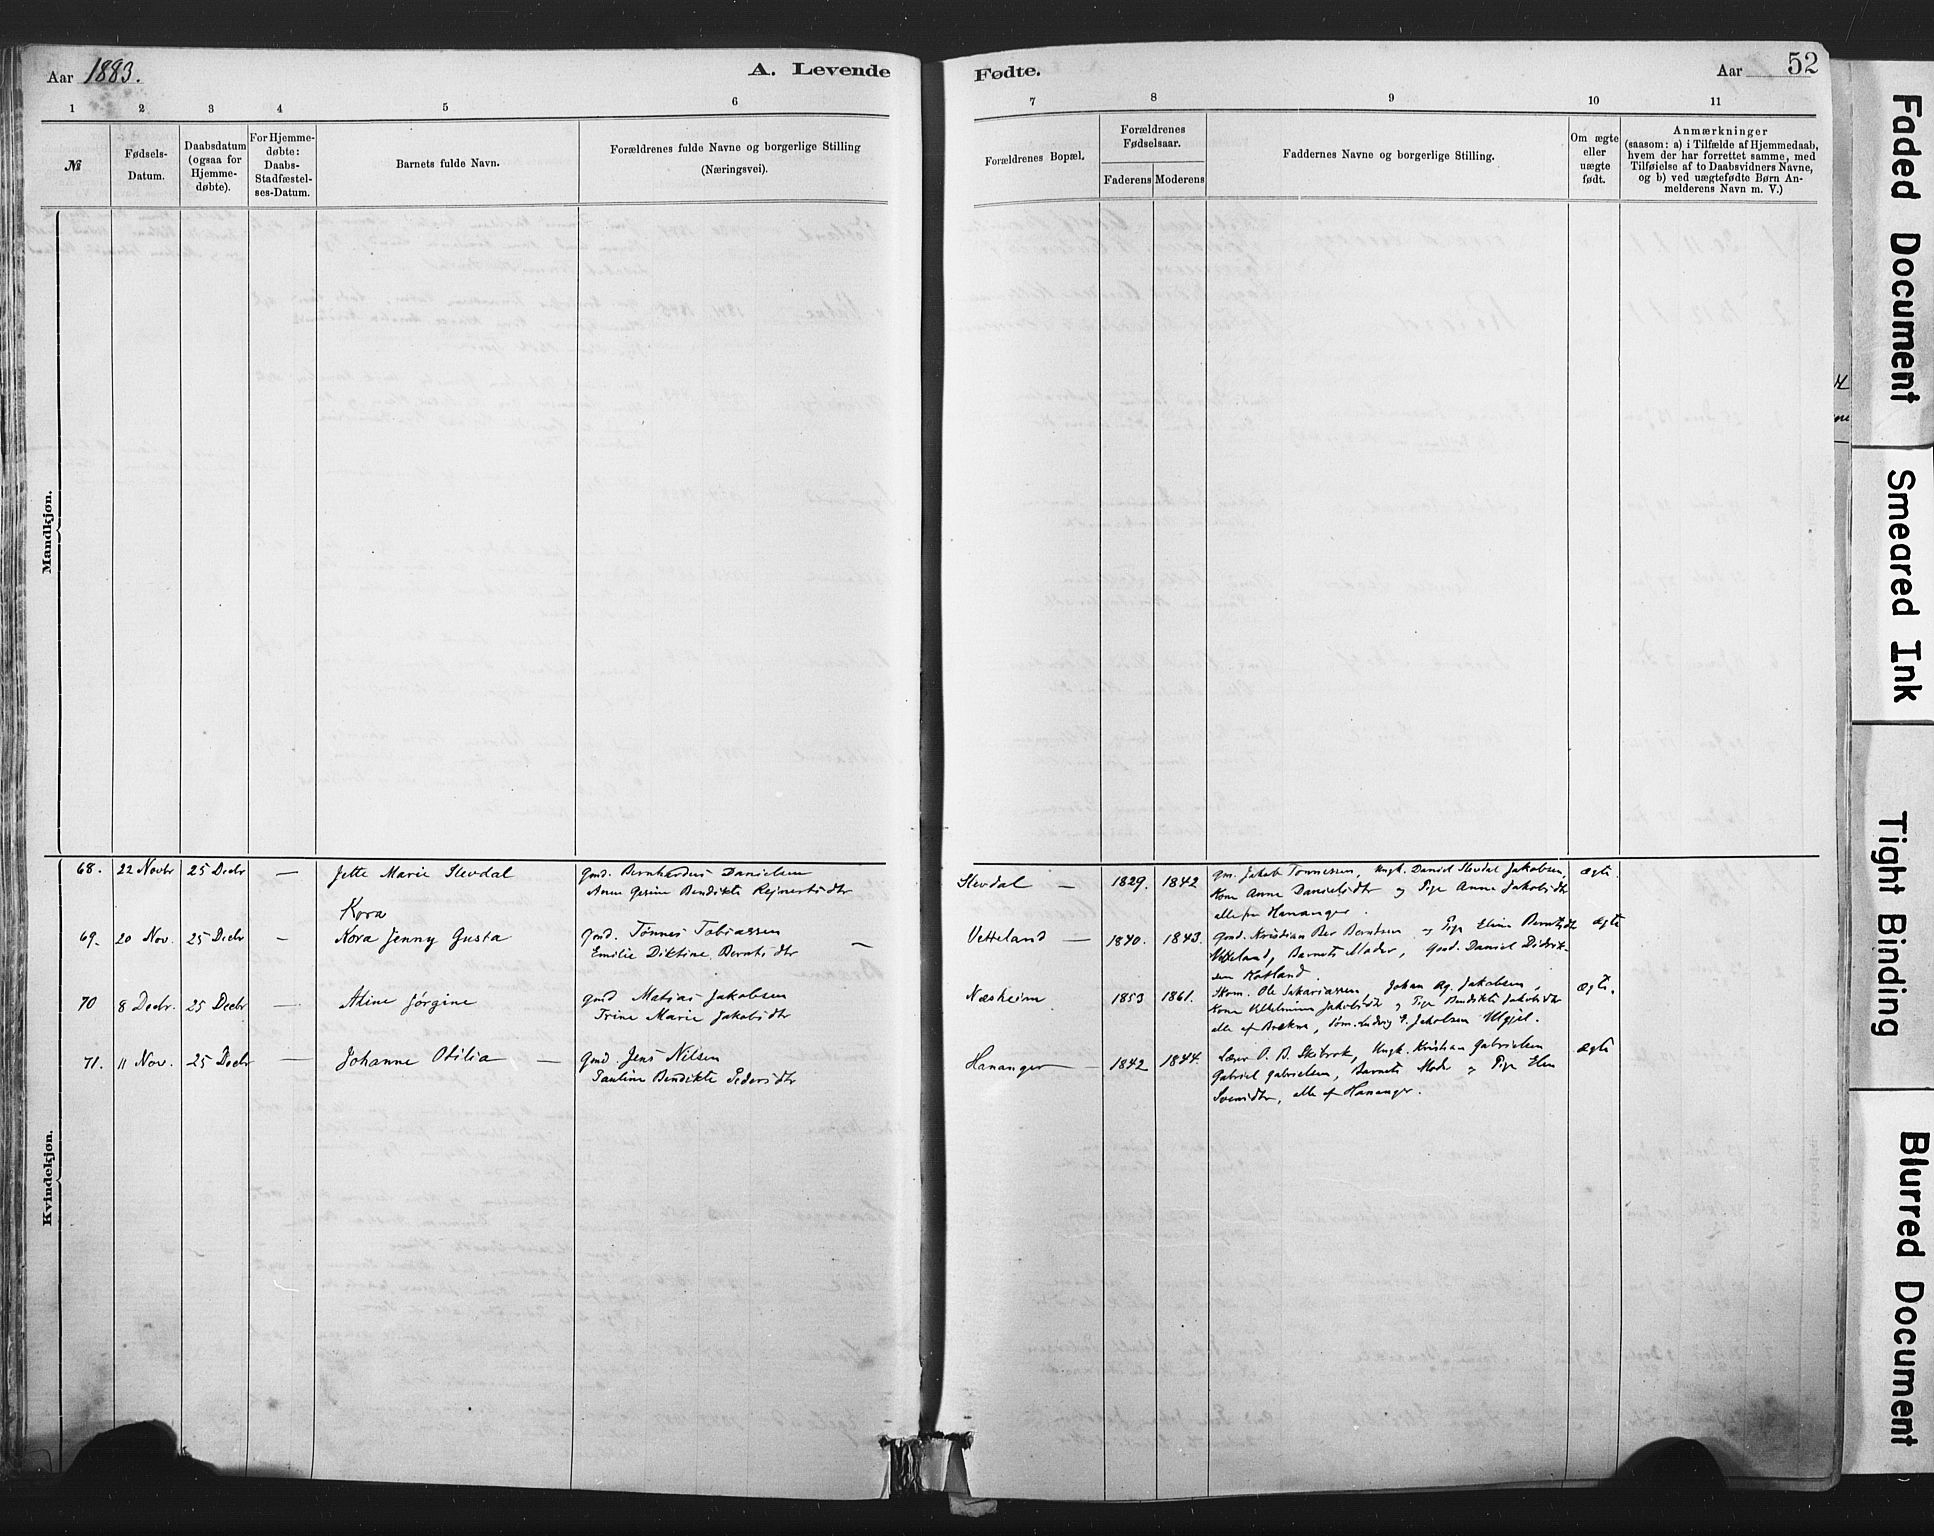 Aar 1883.
A. Levende
Fødte.
Aar
52
1 2 3 4 5 6 7 8 9 10 11
№
Fødsels-
Datum.
Daabsdatum
(ogsaa for
Hjemme-
døbte).
For Hjemme-
døbte:
Daabs-
Stadfæstel-
ses-Datum.
Barnets fulde Navn.
Forældrenes fulde Navne og borgerlige Stilling
(Næringsvei).
Forældrenes Bopæl.
Forældrenes
Fødselsaar.
Faderens Moderens
Faddernes Navne og borgerlige Stilling.
Om ægte
eller
uægte
født.
Anmærkninger
(saasom: a) i Tilfælde af Hjemmedaab,
hvem der har forrettet samme, med
Tilføielse af to Daabsvidners Navne,
og b) ved uægtefødte Børn An-
melderens Navn m. V.)
Mandkjøn.
Kvindekjøn.
68. 22 Novbr 25 Decbr — Jette Marie Slevdal
Gmd. Bernhardus Danielsen
Anne Gesine Bendikte Rejnertsdtr
Slevdal — 1829. 1842
Gm. Jakob Tønnessen, Ungk. Daniel Slevdal Jakobsen,
Kone Anne Danielsdtr og Pige Anne Jakobsdtr
alle fra Hananger.
ægte.
Kora
69. 20 Nov. 25 Decbr — Kora Jenny Gusta
Gmd. Tønnes Tobiassen
Emilie Diktine Berntsdtr —
Vetteland — 1840. 1843.
Gmd. Kristian Ber Berntsen og Pige Eline Berntsdtr
Vetteland, Barnets Moder, Gmd. Daniel Didrik-
sen Katland.
ægte
70 8 Decbr. 25 Decbr — Aline Jørgine
Gmd Matias Jakobsen
Trine Marie Jakobsdtr
Næsheim 1853 1861.
Skom. Ole Sakariassen, Johan Ag. Jakobsen,
Kone Vilhelmine Jakobsdtr og Pige Bendikte Jakobsdtr
alle af Brekne, Tøm. Ludvig E. Jakobsen Ulgjel.
ægte.
71. 11 Nov. 25 Decbr — Johanne Otilia —
Gmd. Jens Nilsen
Pauline Bendikte Pedersdtr
Hananger — 1842 1844.
Lærer O. B. Skibrok, Ungk. Kristian Gabrielsen
Gabriel Gabrielsen, Barnets Moder og Pige Elen
Svensdtr, alle af Hananger.
ægte
Faded Document
Smeared Ink
Tight Binding
Blurred Document